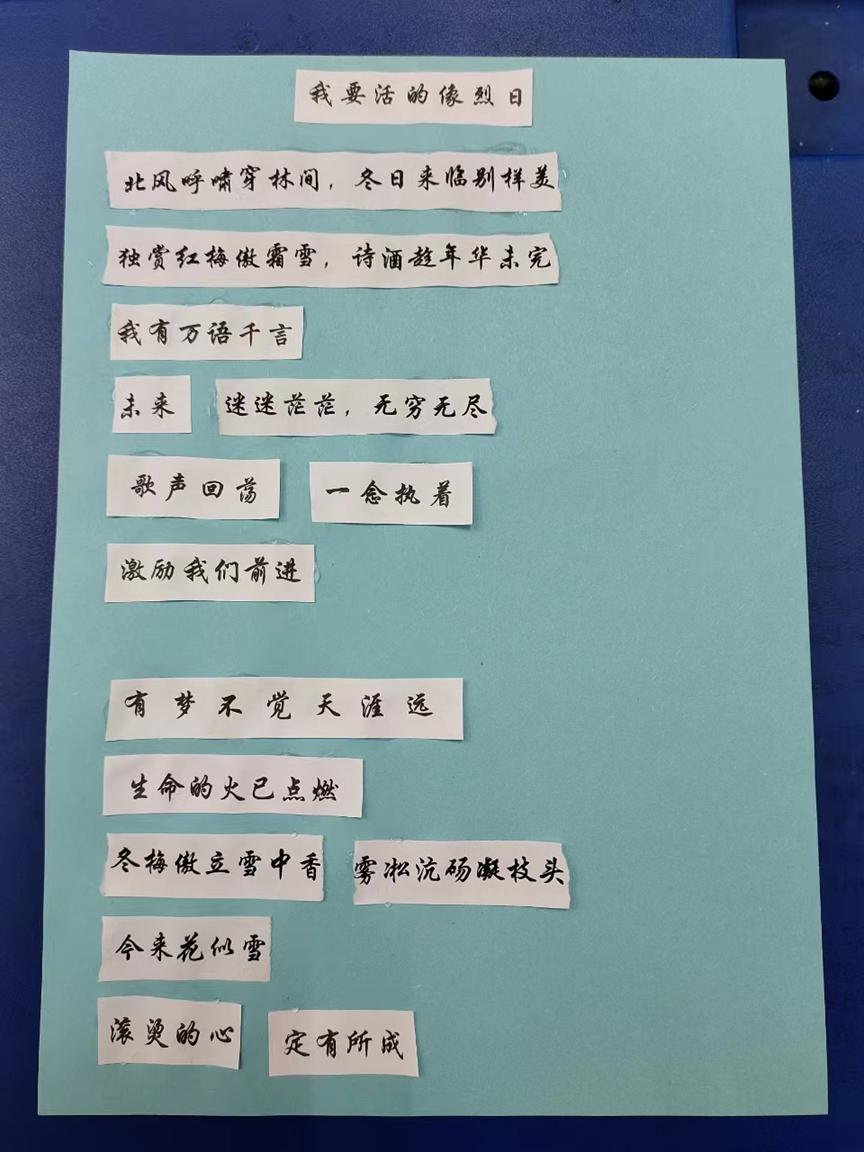 我要活的像烈日
北风呼啸穿林间，冬日来临别样美
独赏红梅傲霜雪，诗酒趁年华未完
我有万语千言
未来 迷迷茫茫，无穷无尽
歌声回荡 一念执着
激励我们前进
有梦不觉天涯远
生命的火已点燃
冬梅傲立雪中香 雾凇沆砀凝枝头
今来花似雪
滚烫的心 定有所成